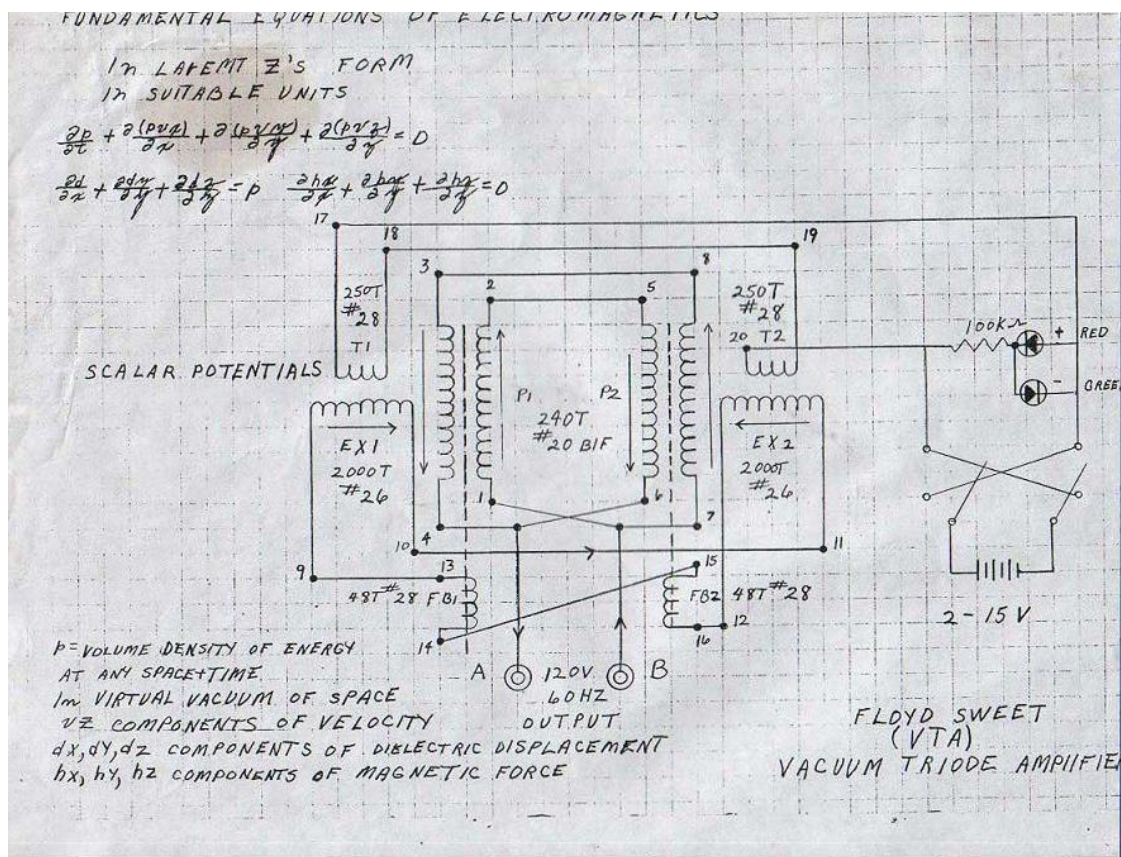 FUNDAMENTAL EQUATIONS OF ELECTROMAGNETICS
In LAREMT Z'S FORM
In SUITABLE UNITS
∂p/∂t + ∂(pvx)/∂x + ∂(pvy)/∂y + ∂(pvz)/∂z = 0
∂d/∂x + ∂dy/∂y + ∂dz/∂z = p ∂hx/∂x + ∂hy/∂y + ∂hz/∂z = 0
17
18
19
3
8
2
5
250T
#28
T1
250T
#28
20 T2
100KΩ
+ RED
- GREE
SCALAR POTENTIALS
P1
P2
240T
#20 BIF
EX1
2000T
#26
EX2
2000T
#26
1
6
4
7
10
11
9
13
15
48T #28 FB1
FB2 48T #28
14
16
12
2-15 V
A 120V B
60HZ
OUTPUT
p = VOLUME DENSITY OF ENERGY
AT ANY SPACE+TIME
In VIRTUAL VACUUM OF SPACE
VZ COMPONENTS OF VELOCITY
dx, dY, dz COMPONENTS OF DIELECTRIC DISPLACEMENT
hx, hy, hz COMPONENTS OF MAGNETIC FORCE
FLOYD SWEET
(VTA)
VACUUM TRIODE AMPIIFIE